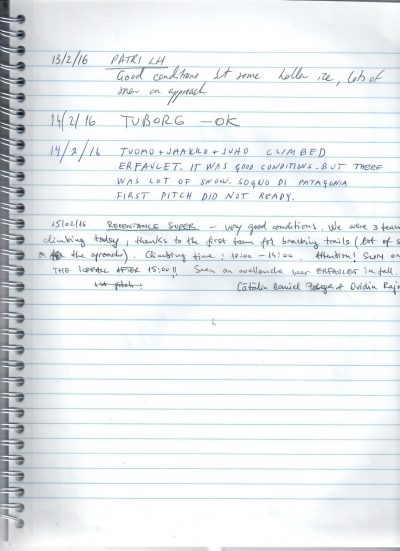 13/2/16 PATRI LH
Good conditions, bt some hollow ice, lots of
snow on approach
14/2/16 TUBORG - OK
14/2/16 TUOMO + JAAKKO + JUHO CLIMBED
ERFAULET. IT WAS GOOD CONDITIONS. BUT THERE
WAS LOT OF SNOW. SOGNO DI PATAGONIA
FIRST PITCH DID NOT READY.
15/02/16 REPENTANCE SUPER - very good conditions. We were 3 teams
climbing today, thanks to the first team for breaching trails (lot of s
on the aproach). Climbing time: 10:00 - 14:00. Attention! SUN ON
THE ICEFALL AFTER 15:00!! Seen an avalanche near ERFAULET icefall.
1st pitch. Cătălin Daniel & Ovidiu